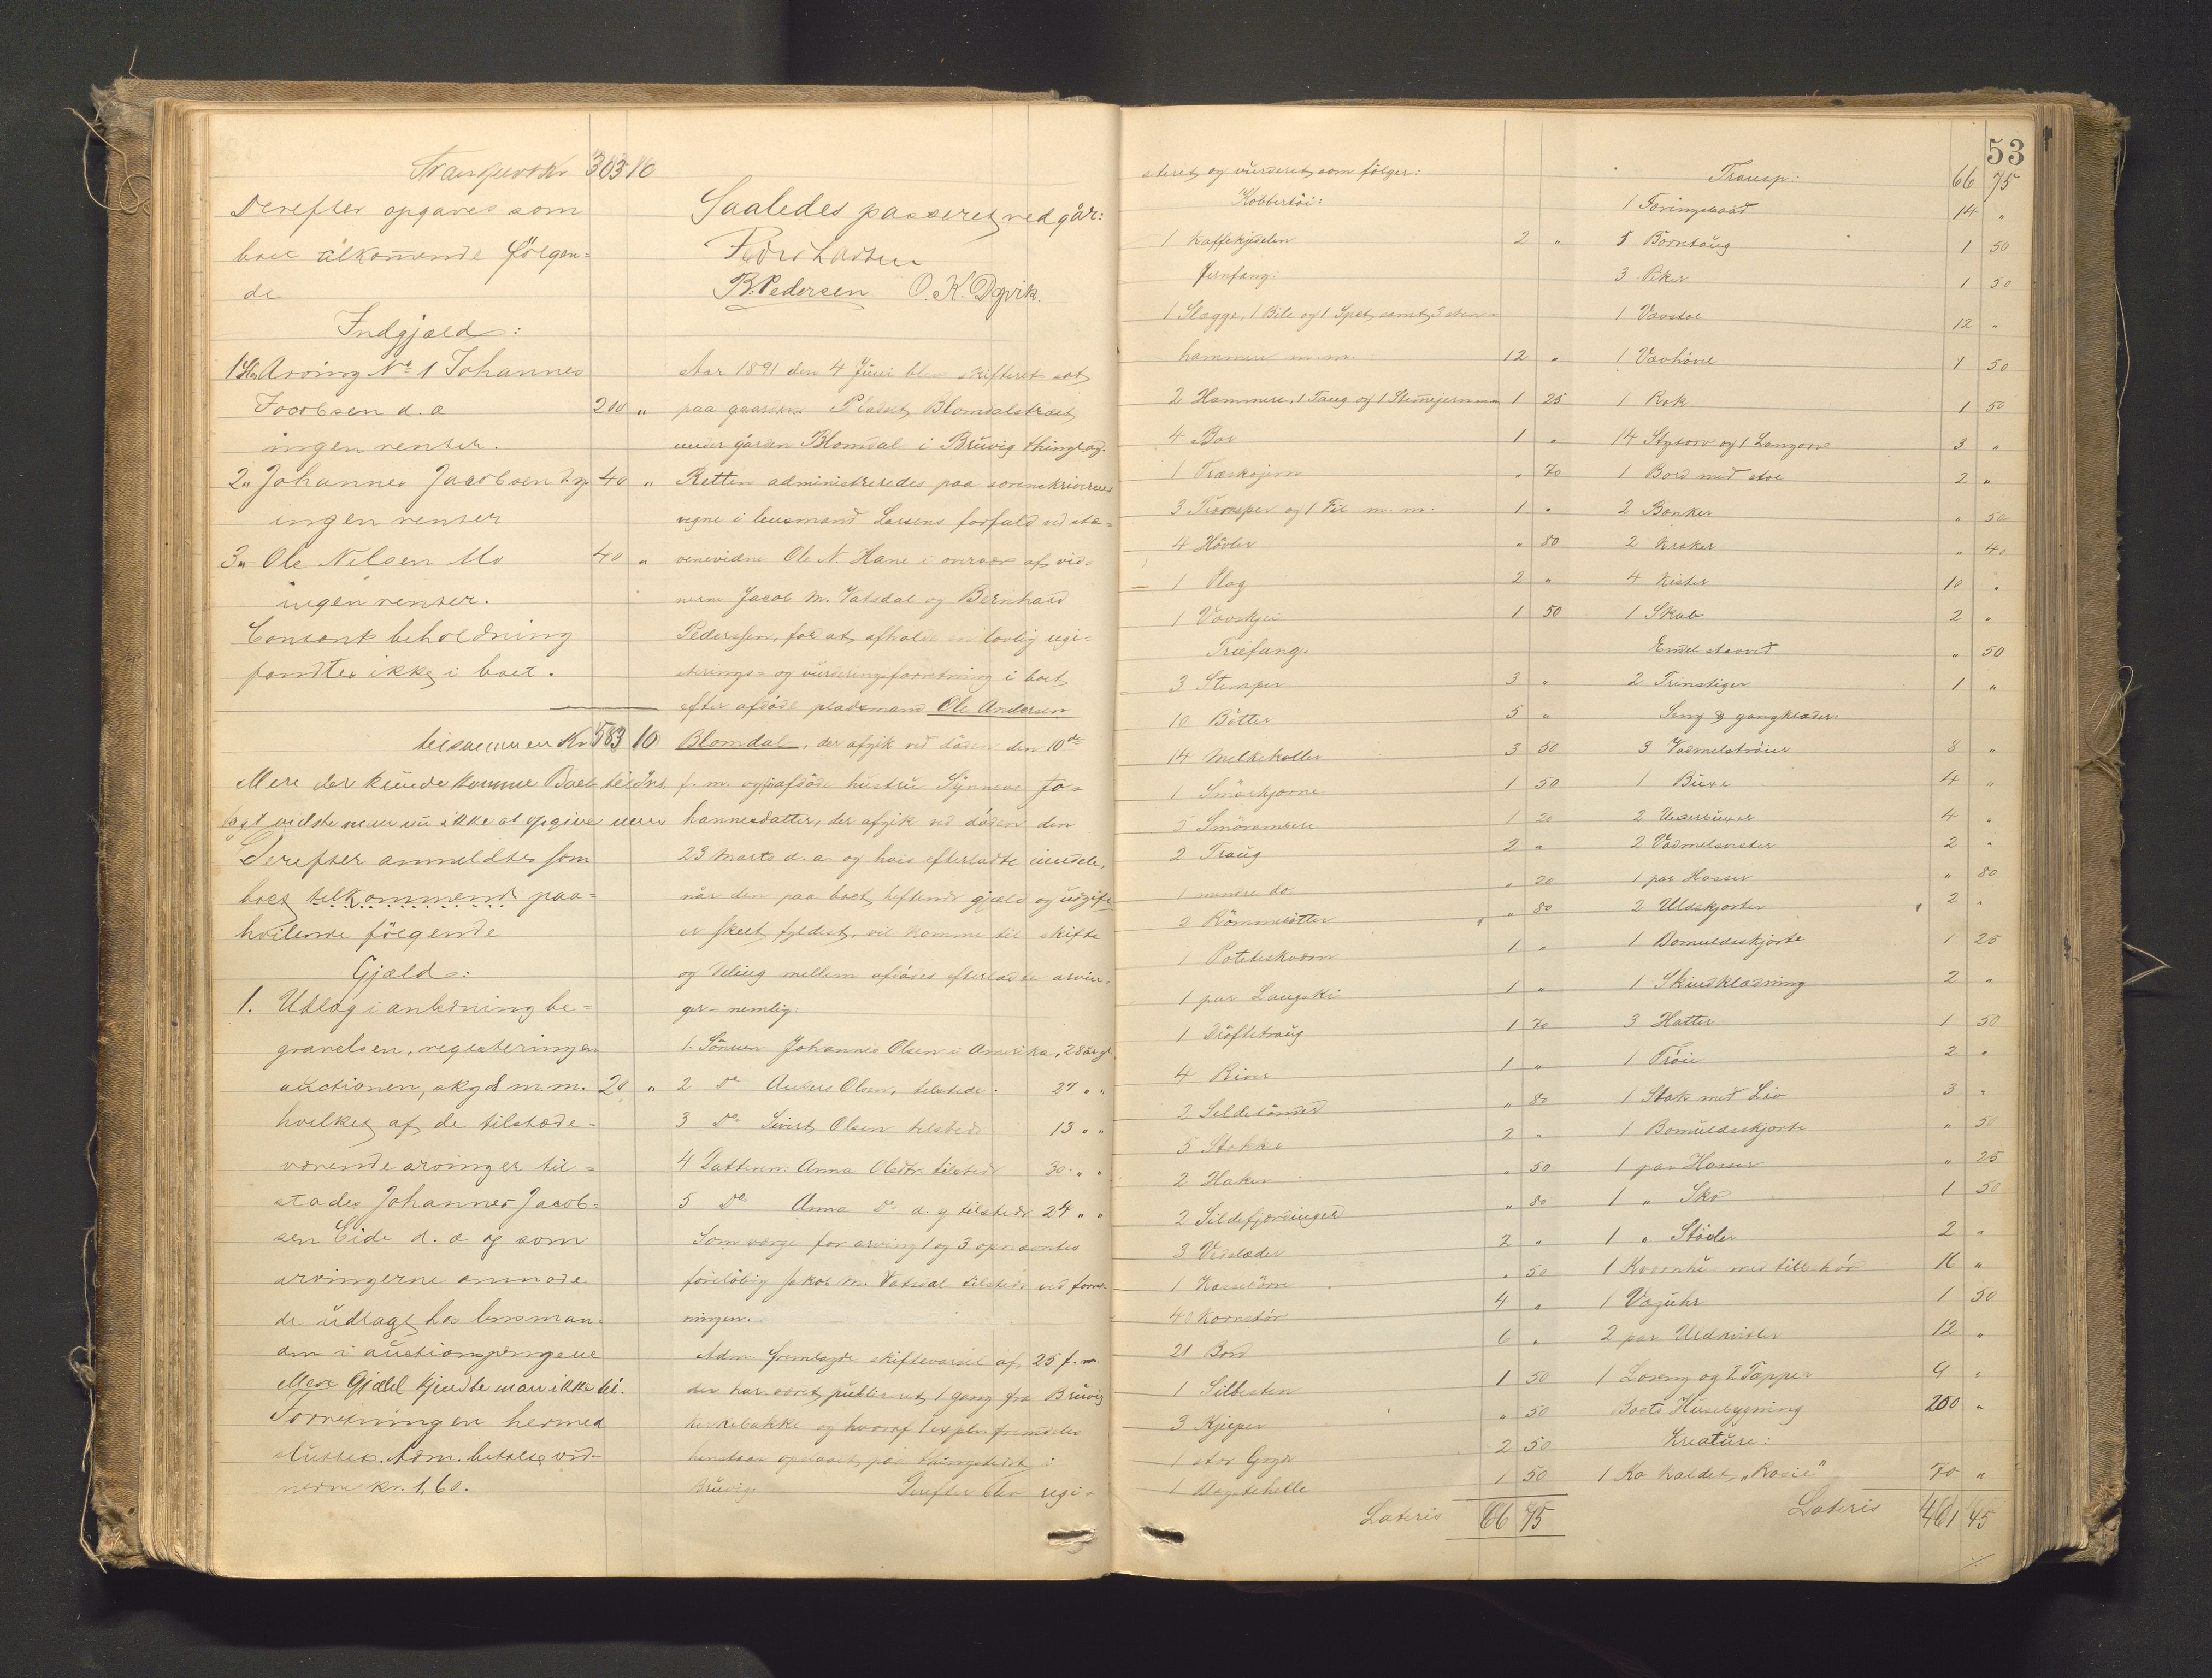 Transport Kr 303 10
Derefter opgaves som
boet tilkommende følgen=
de
Indgjæld:
1. Arving No 1 Johannes
Jacobsen d. æ 200 "
ingen renter.
2. Johannes Jacobsen d. y 40 "
ingen renter
3. Ole Nilsen Mo 40 "
ingen renter.
Contant beholdning
fandtes ikke i boet.
tilsammen Kr 583 10
Mere der kunde komme Boet til Ind-
tægt vidste man nu ikke at opgive
Derefter anmeldtes som
boet tilkommend paa=
hvilende følgende
Gjæld:
1. Udlæg i anledning be=
gravelsen, registeringen
auctionen, skyds m.m. 20 "
hvilket af de tilstæde=
værende arvinger til=
stades Johannes Jacob=
sen Eide d. æ og som
arvingerne anmode
de udlagt hos lensman=
den i auctionspengene
Mere Gjæld kjendte man ikke til.
Forretningen hermed
sluttes. Adm. betalte vid-
nerne kr. 1,60.
Saaledes passeret vedgår:
Lassen
B. Pedersen O. K. Dyvik.
Aar 1891 den 4 Juni blev skifteret sat
paa gaarden Pladset Blomdalstræet
under gården Blomdal i Bruvig thinglag.
Retten administreredes paa sorenskriverens
vegne i lensmand Larsens forfald ved stæ=
venevidne Ole N. Hane i overvær af vid=
nerne Jacob M. Vatsdal og Bernhard
Pederssen, for at afholde en lovlig regi=
sterings= og vurderingsforretning i boet
efter afdøde pladsmand Ole Andersen
Blomdal, der afgik ved døden den 10de
f. m. og afdøde hustru Synneve Jo=
hannesdatter, der afgik ved døden den
23 Marts d. a. og hvis efterladte eiendele,
når den paa boet heftende gjæld og udgifter
er skeet fyldest, vil komme til skifte
og deling mellem afdødes efterladte arvin=
ger - nemlig:
1. Sønnen Johannes Olsen i Amerika, 28 år gl
2 Do Anders Olsen, tilstede. 27 " "
3 Do Sivert Olsen tilstede 13 " "
4 Datteren Anna Olsdtr. tilstede 30 " "
5 Do Anna Do d. y tilstede 24 " "
Som værge for arving 1 og 3 opnævntes
foreløbig Jakob M. Vatsdal tilstede ved forret-
ningen.
Adm. fremlagde skiftevarsel af 25 f. m.
der har været publiceret 1 gang fra Bruvig
kirkebakke og hvoraf 1 expl. fremdeles
henstaar opslaaet paa thingstedet i
Bruvig. Derefter blev regi=
53
steret og vurderet som følger:
Kobbertøi:
1 Kaffekjedelen 2 "
Jernfang:
1 Slægge, 1 Bile og 1 Spet samt 3 sten=
hammere m.m. 12 "
2 Hammere, 1 Taug og 1 Stemmejern 1 25
4 Bor 1 "
1 Træskojern " 70
3 og 1 Fil m. m. 1 "
4 Høvler " 80
1 Plog 2 "
1 Vævskjei 1 50
Træfang.
3 Stamper 3 "
10 Bøtter 5 "
14 Melkekoller 3 50
1 Smørkjerne 1 50
5 Smørambere 1 20
2 Traug 2 "
1 mindre do " 20
2 Rømmebøtter " 80
1 Poteteskværn 1 "
1 par Langski 1 "
1 Drøftetraug 1 70
4 River 1 "
2 Sildetønder " 80
5 Stokke 2 "
2 Haker " 50
2 Sildefjerdinger " 80
3 Vedslæder 2 "
1 Kasseløre " 50
40 Kornstør 4 "
21 Bord 6 "
1 Slibesten 1 50
3 Kjeper " 50
1 stor Gryde 2 50
1 Bagstehelle 1 50
Lateris 66 75
Transp: 66 75
1 Færingsbaad 14 "
5 Børntaug 1 50
3 Piker 1 50
1 Vævstol 12 "
1 Vævhövel 1 50
1 Rok 1 50
14 Stytorv og 1 Langorv 3 "
1 Bord med stol 2 "
2 Bænker " 50
2 Krakker " 40
4 Kister 10 "
1 Skab 2 "
Endel stavved " 50
2 Trinstiger 1 "
Seng & gangklæder:
3 Vadmelstrøier 8 "
1 Buxe 4 "
2 Underbuxer 4 "
2 Vadmelsvester 2 "
1 par Hoser " 80
2 Uldskjorter 2 "
1 Bomuldsskjorte 1 25
1 Skindklædning 2 "
3 Hatter 1 50
1 Trøie 2 "
1 Stak med Liv 3 "
1 Bomuldsskjorte " 50
1 par Hoser " 25
1 " Sko 1 50
1 " Støvler 2 "
1 Kvernhus med tilbehør 16 "
1 Væguhr 1 50
2 par Uldkister 12 "
1 Løseng og 2 Tæpper 9 "
Boets Husebygning 200 "
Kreature:
1 Ko kaldet „Rosie" 70 "
Lateris 461 45